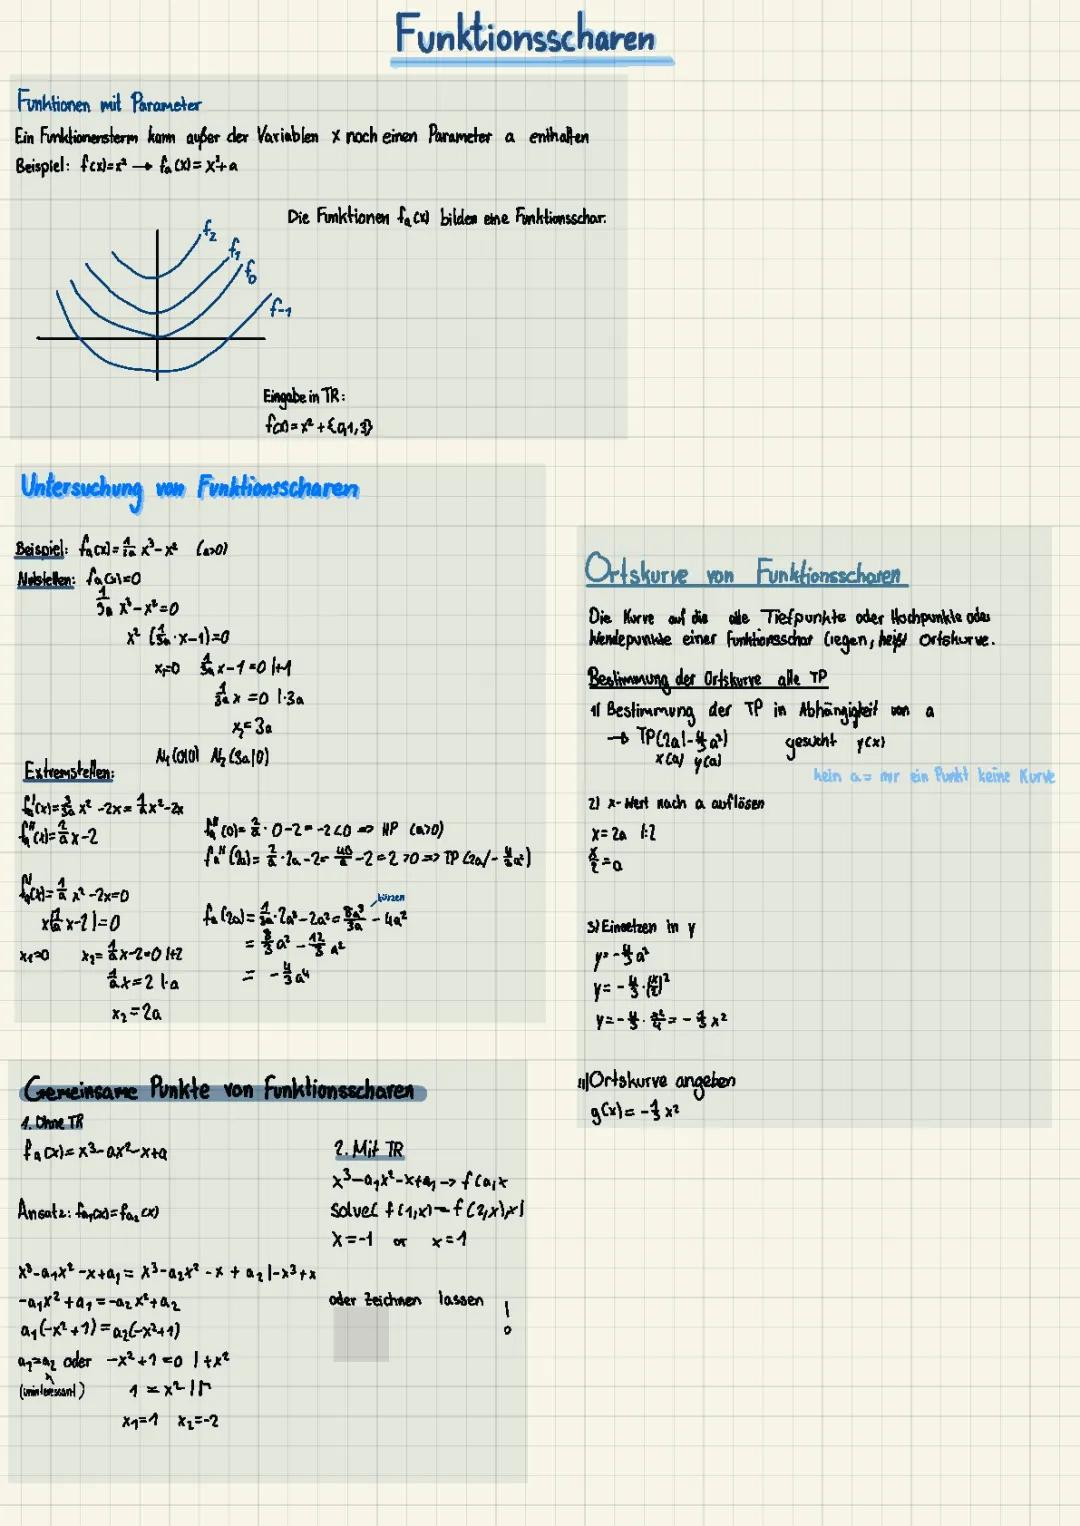 Funktionsscharen
Funktionen mit Parameter
Ein Funktionensterm kann außer der Variablen x noch einen Parameter a enthalten
Beispiel: f(x)=x² → fₐ(x)=x²+a
Die Funktionen fₐ(x) bilden eine Funktionsschar.
f₂
f₁
f₀
f₋₁
Eingabe in TR:
f(x)=x²+{0,1,3}
Untersuchung von Funktionsscharen
Beispiel: fₐ(x)=1/3a x³-x² (a>0)
Nullstellen: fₐ(x)=0
1/3a x³-x²=0
x² (1/3a·x-1)=0
x₁=0 1/3a x-1=0 |+1
1/3a x =0 |·3a
x₂=3a
N₁(0|0) N₂(3a|0)
Extremstellen:
fₐ'(x)=3/3a x²-2x=1/a x²-2x
fₐ''(x)=2/a x-2
fₐ'(x)=1/a x²-2x=0
x(1/a x-2)=0
x₁=0 x₂= 1/a x-2=0 |+2
1/a x=2 |·a
x₂=2a
fₐ''(0)=2/a·0-2=-2<0 => HP (a>0)
fₐ''(2a)=2/a·2a-2=4a/a-2=2>0 => TP(2a/-4/3a²)
kürzen
fₐ(2a)=1/3a·2a³-2a²=8a³/3a-4a²
=8/3a²-12/3a²
= -4/3a⁴
Ortskurve von Funktionsscharen
Die Kurve auf die alle Tiefpunkte oder Hochpunkte oder
Wendepunkte einer Funktionsschar liegen, heißt Ortskurve.
Bestimmung der Ortskurve alle TP
1) Bestimmung der TP in Abhängigkeit von a
→ TP(2a|-4/3a²) gesucht y(x)
x(a) y(a)
kein a = nur ein Punkt keine Kurve
2) x-Wert nach a auflösen
x=2a |:2
x/2=a
3) Einsetzen in y
y=-4/3a²
y=-4/3·(x/2)²
y=-4/3·x²/4=-1/3x²
4) Ortskurve angeben
g(x)=-1/3x²
Gemeinsame Punkte von Funktionsscharen
1. Ohne TR
fₐ(x)=x³-ax²-x+a
Ansatz: fₐ₁(x)=fₐ₂(x)
x³-a₁x²-x+a₁=x³-a₂x²-x+a₂ |-x³+x
-a₁x²+a₁=-a₂x²+a₂
a₁(-x²+1)=a₂(-x²+1)
a₁=a₂ oder -x²+1=0 |+x²
(uninteressant) 1=x² |√
x₁=1 x₂=-2
2. Mit TR
x³-a₁x²-x+a₁ -> f(a,x
solve( f(1,x)=f(2,x),x)
x=-1 or x=1
oder zeichnen lassen !